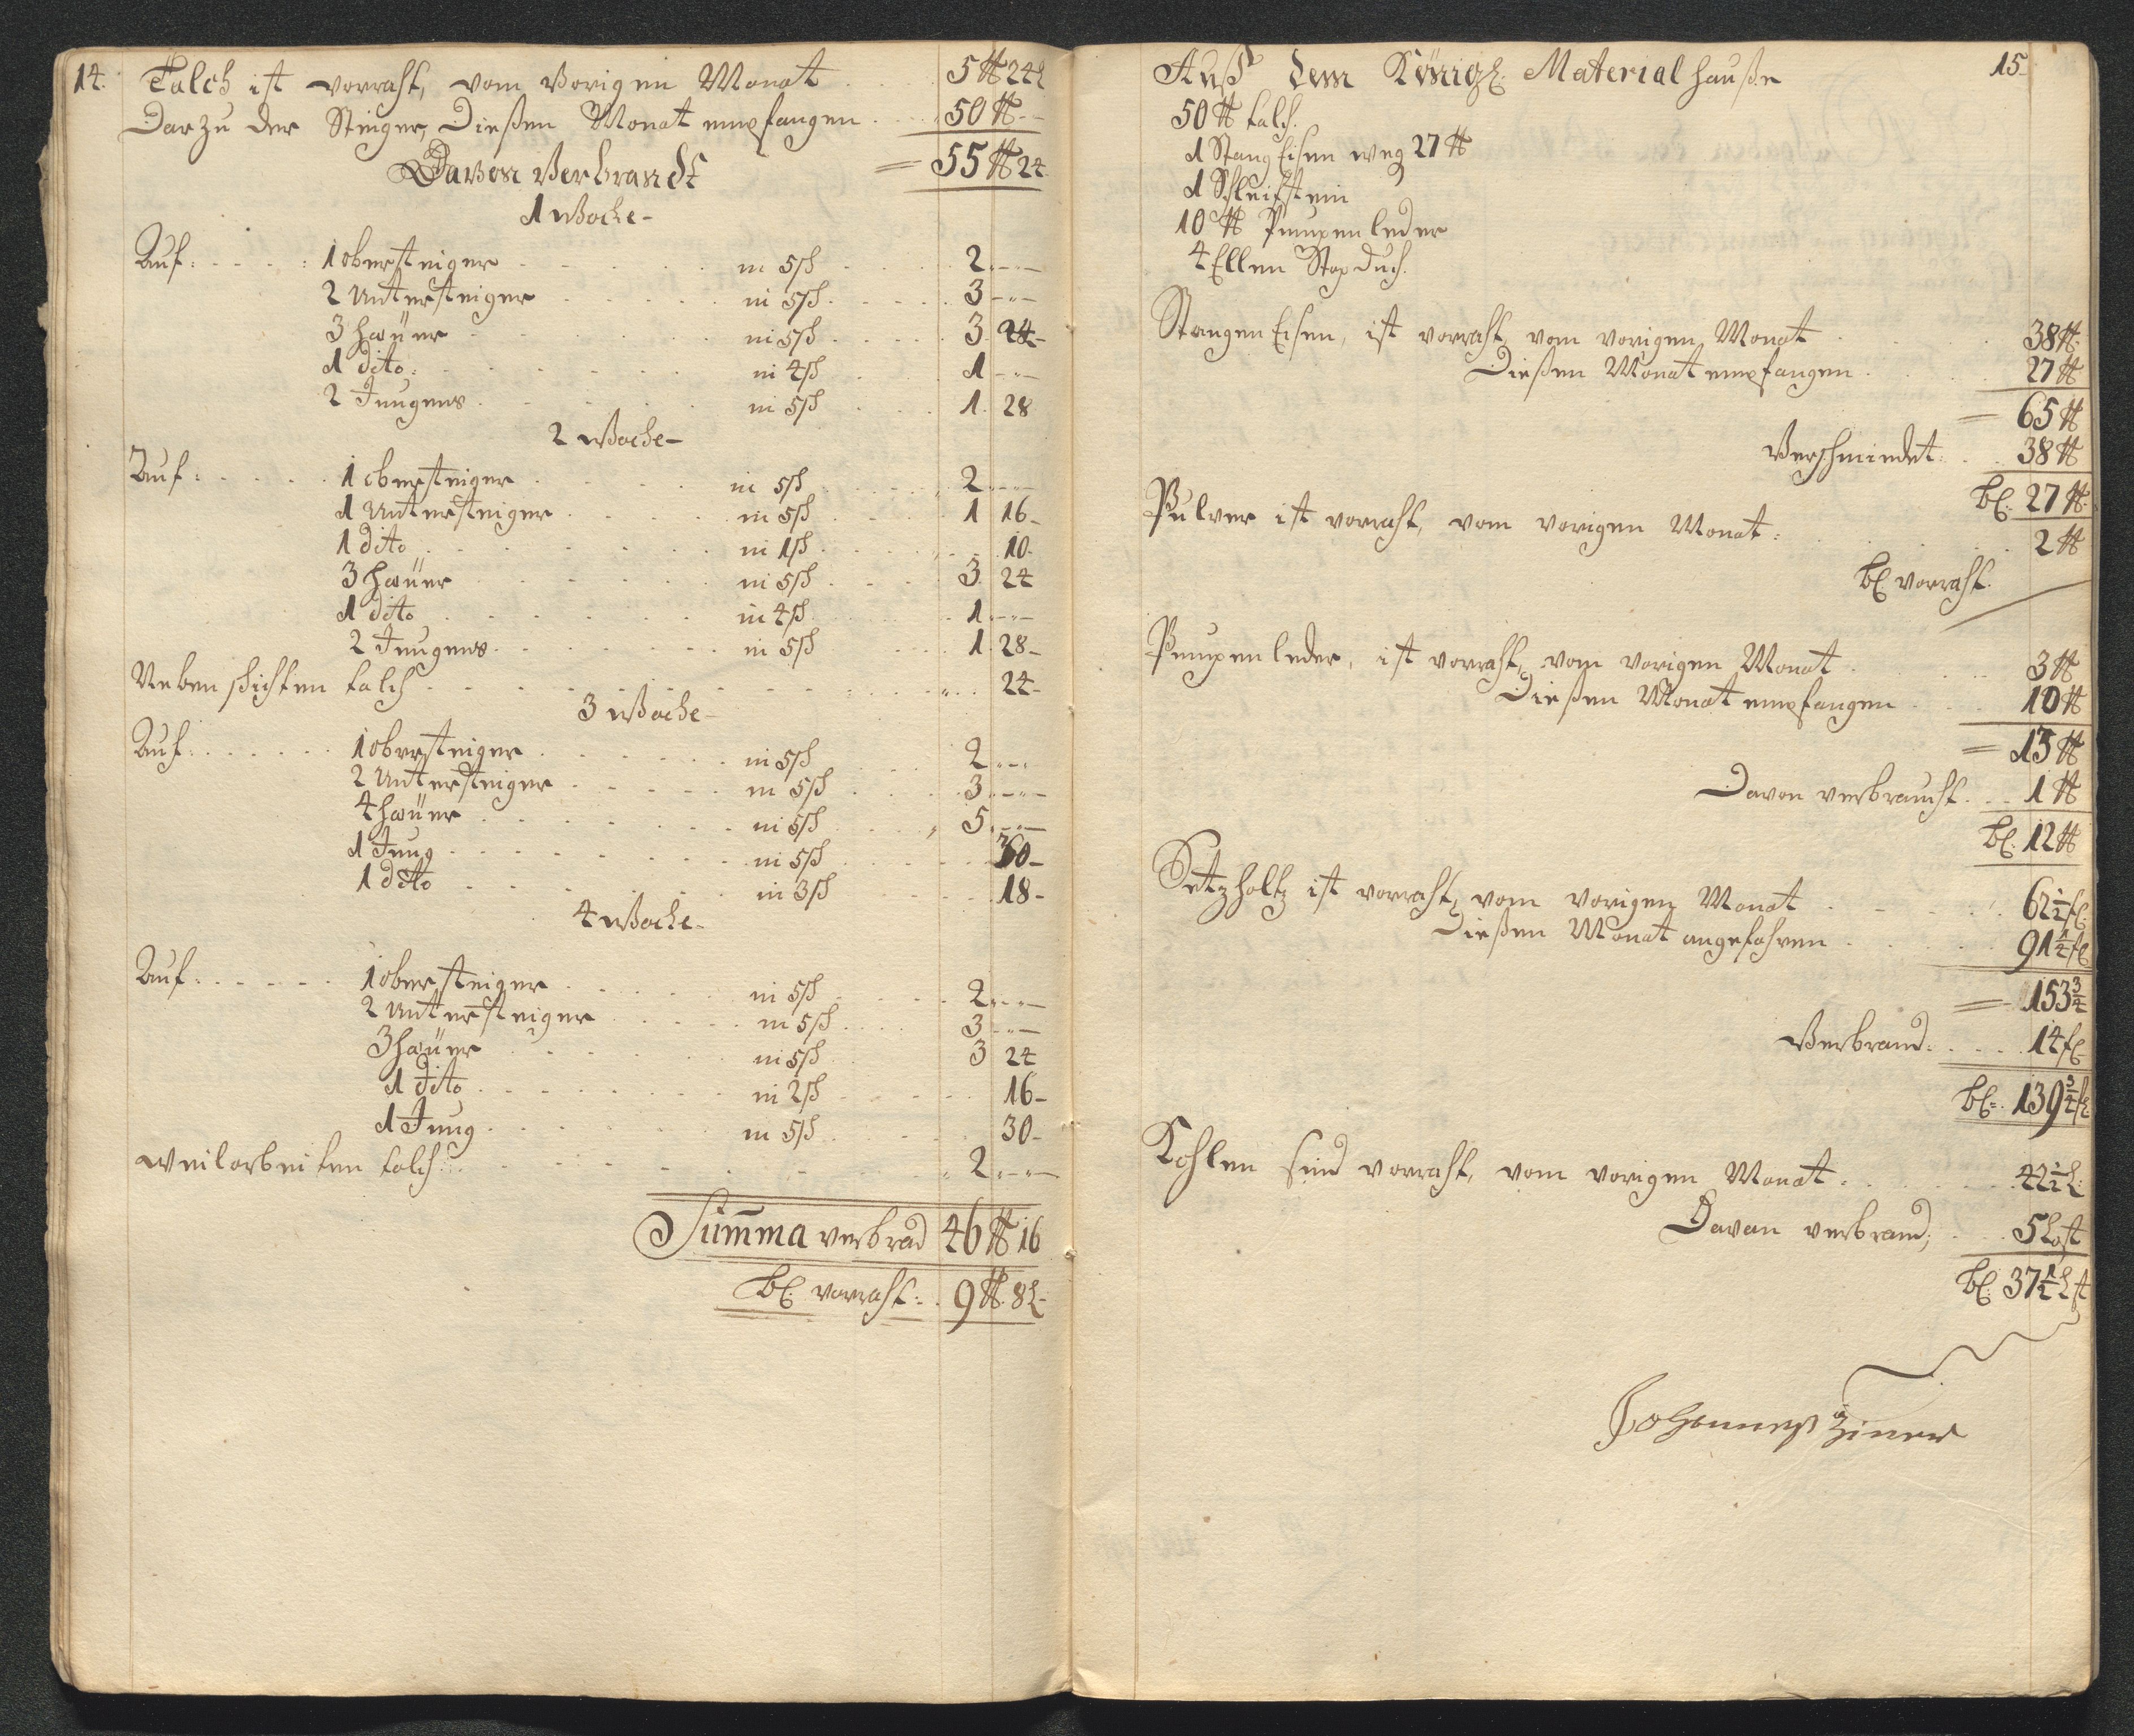 14.
Talch ist vorraht, vom Vorigen Monat . . 5 ℔ 24 L
Darzu der Steiger, Dießen Monat empfangen . . . 50 ℔ --
Davon Verbrandt = 55 ℔ 24.
1 Woche -
Auf: . . . : 1 obersteiger . . . in 5 sch . . . 2 . -"-
2 Untersteiger . . . in 5 sch . . . 3 -"-
3 haüer . . . in 5 sch . . . 3. 24 -
1 dito : . . . in 4 sch . . . 1 -"-
2 Jungens . . . in 5 sch . . . 1. 28
2 Woche -
Auf: . . . . 1 obersteiger . . . in 5 sch . . . 2 -"-
1 Untersteiger . . . in 5 sch . . . 1 16 -
1 dito . . . in 1 sch . . . " 10.
3 haüer . . . in 5 sch . . . 3. 24
1 dito . . . in 4 sch . . . 1 . -"-
2 Jungens . . . in 5 sch . . . 1. 28 -
Neben schichten talch . . . " 24 -
3 Woche -
Auf: . . . . 1 obersteiger . . . in 5 sch . . . 2 -"-
2 Untersteiger . . . in 5 sch . . . 3 . -"-
4 haüer . . . in 5 sch . . . 5 -"-
1 Jung . . . in 5 sch . . . 30 -
1 dito . . . in 3 sch . . . 18 -
4 Woche -
Auf: . . . . 1 obersteiger . . . in 5 sch . . . 2 . -"-
2 Untersteiger . . . in 5 sch . . . 3 -"-
3 haüer . . . in 5 sch . . . 3 24
1 dito . . . in 2 sch . . . 16 -
1 Jung . . . in 5 sch . . . 30 -
weilarbeiten talch : . . . " 2 . -"-
Sum̄ma verbrad 46 ℔ 16
bl. vorraht : . 9 ℔. 8 L -
15.
Auß dem Königl. Material hauße
50 ℔ talch.
1 Stang Eisen weg 27 ℔
1 Schleifstein
10 ℔ Pumpen leder
4 Ellen Stop duch.
Stangen Eisen, ist vorraht, vom vorigen Monat . . . 38 ℔.
Dießen Monat empfangen . . . 27 ℔
= 65 ℔
Verschmiedet : . . 38 ℔
bl. 27 ℔.
Pulver ist vorraht, vom vorigen Monat : . . . 2 ℔
bl. vorraht.
Pumpen leder, ist vorraht, vom vorigen Monat . . . 3 ℔
Dießen Monat empfangen . . . 10 ℔
= 13 ℔
Davon verbraucht . . . 1 ℔
bl. 12 ℔
Setzholtz ist vorraht, vom vorigen Monat . . . 62 1/2 fl.
Dießen Monat angefahren . . . 91 1/4 fl
= 153 3/4
Verbrand : . . . 14 fl
bl. 139 3/4 fl.
Kohlen sind vorraht, vom vorigen Monat : . . . 42 1/2 L.
Davan verbrand, . . . 5 Last
bl. 37 1/2 Lst
Johannes Ziener